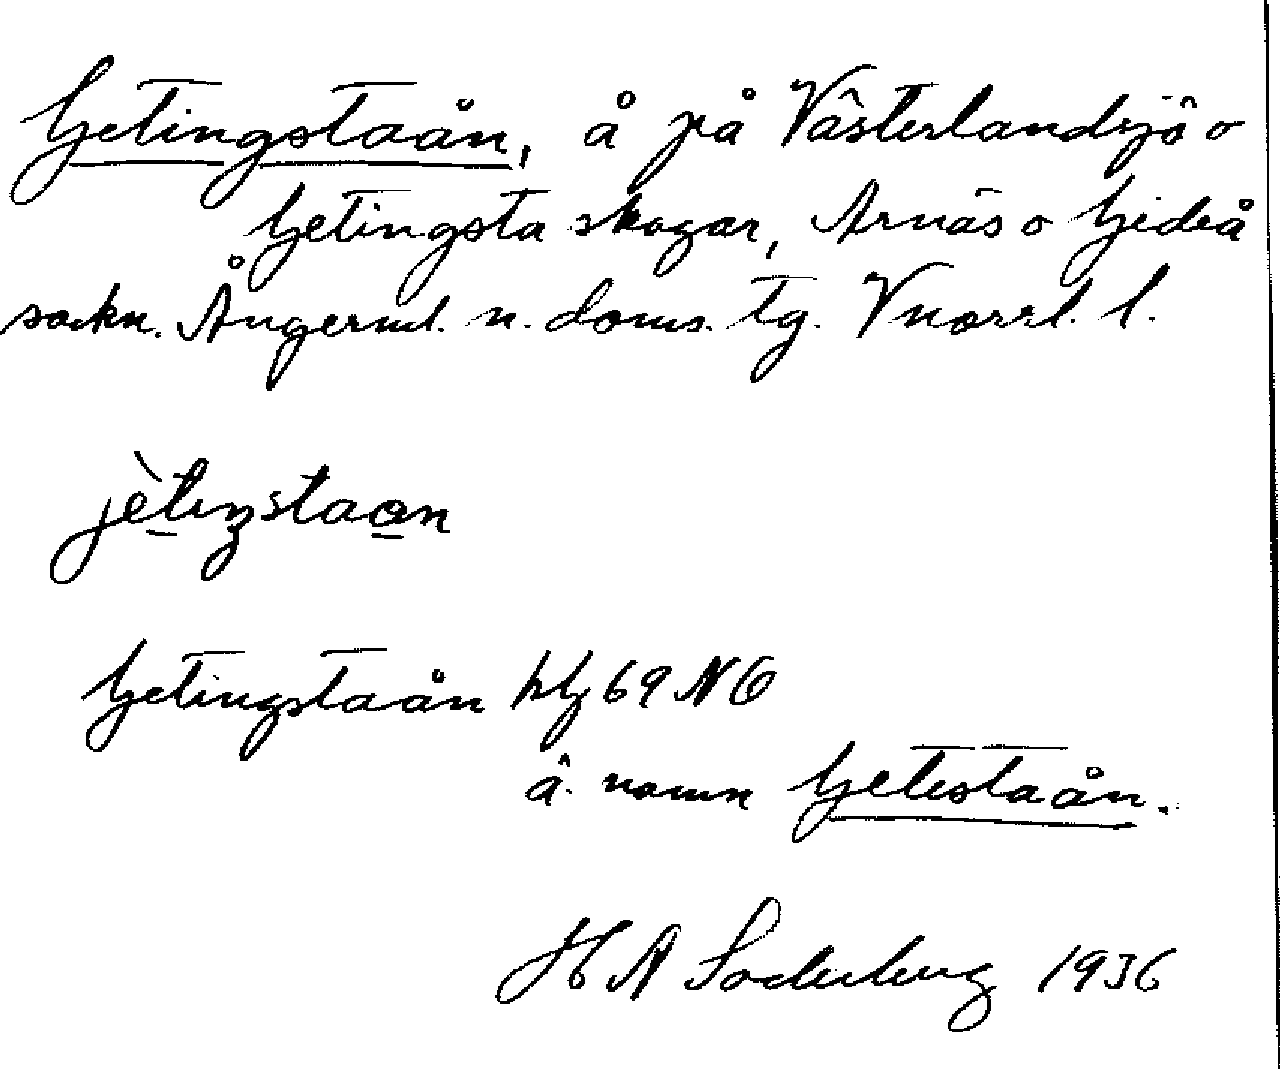 Getingstaån, å på Västerlandsjö o
Getingsta skogar, Arnäs o Gideå
sockn. Ångerml. n. doms. tg. Vnorrl. l.
jètiŋstaan
Getingstaån bl 69 NO
ä. namn Getestaån.
H A Söderberg 1936